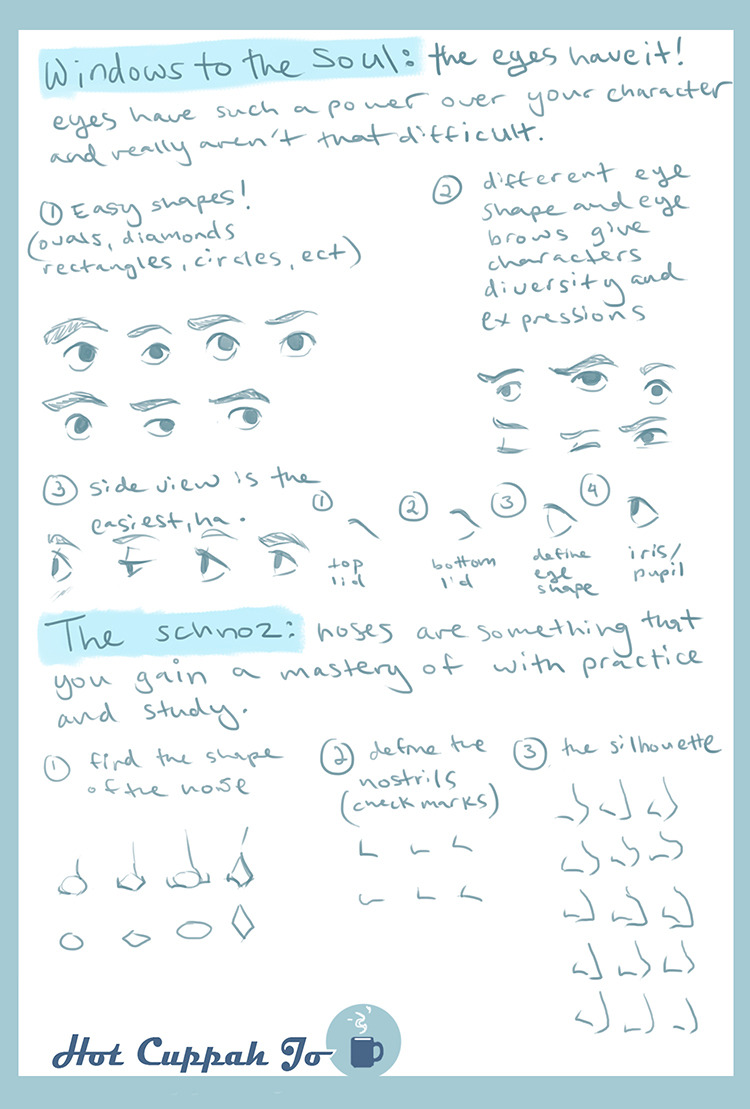 Windows to the Soul: the eyes have it!
eyes have such a power over your character
and really aren't that difficult.
① Easy shapes!
(ovals, diamonds
rectangles, circles, ect)
② different eye
shape and eye
brows give
characters
diversity and
expressions
③ side view is the
easiest, ha.
① top
lid
② bottom
lid
③ define
eye
shape
④ iris/
pupil
The schnoz: noses are something that
you gain a mastery of with practice
and study.
① find the shape
of the nose
② define the
nostrils
(check marks)
③ the silhouette
Hot Cuppah Jo